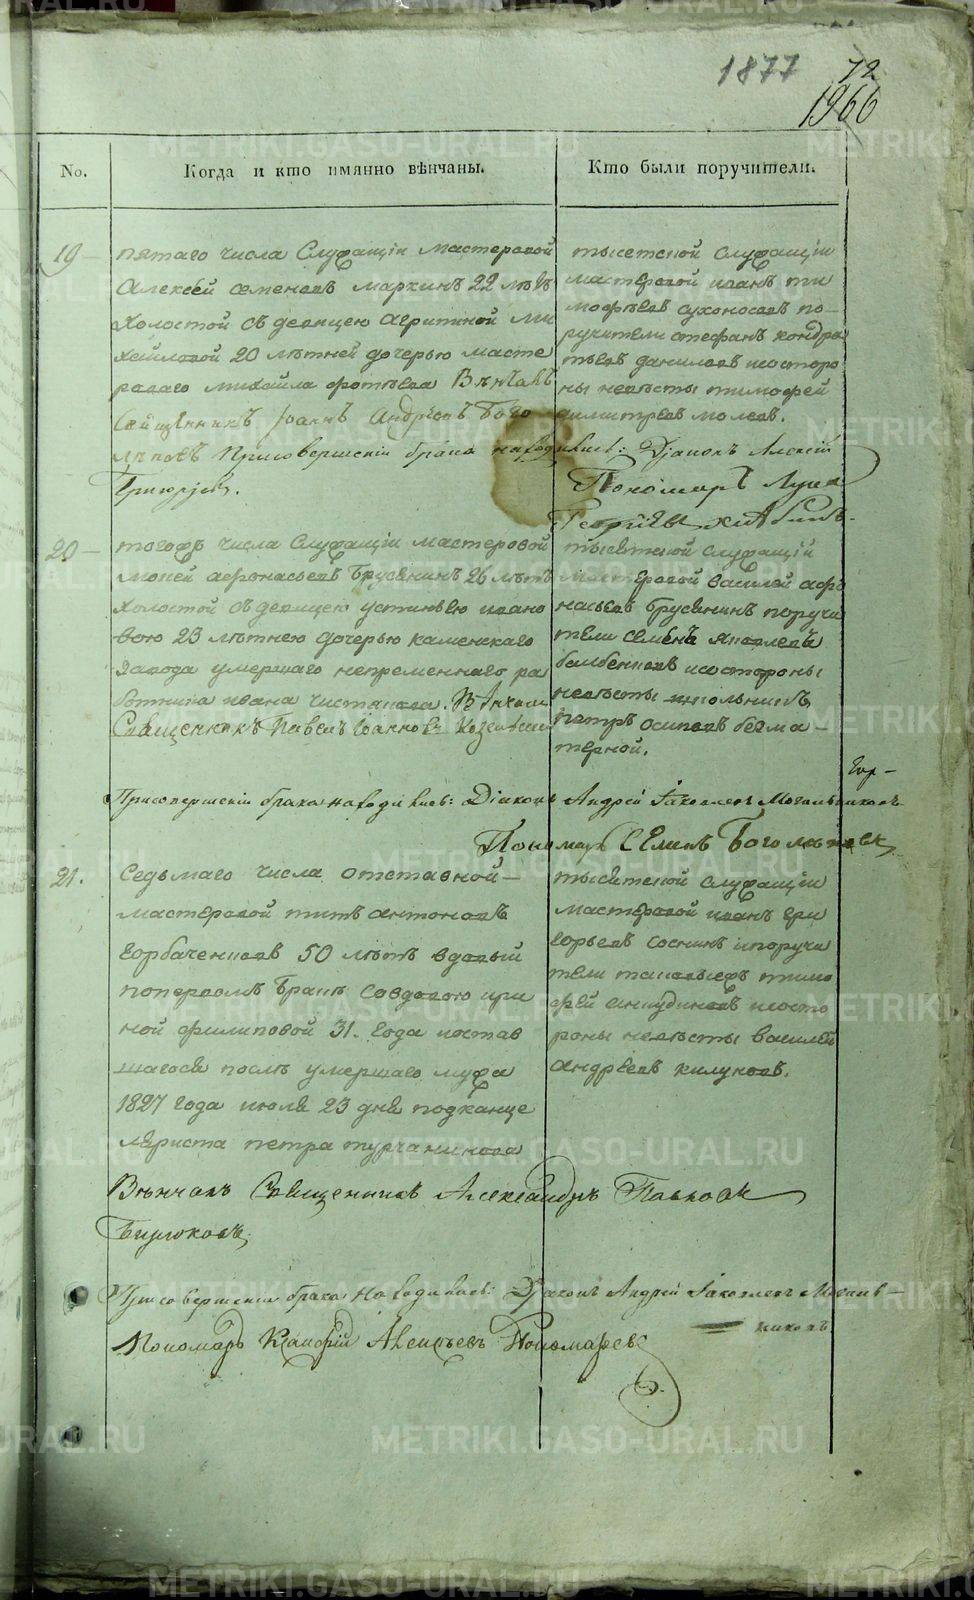 1877 72
1966
No. Когда и кто имянно вѣнчаны. Кто были поручители.
19
пятаго числа Служащiи мастеровой
Алексѣй семеновъ маркинъ 22 лѣтъ
холостой съ девицею агрипиной ми
хеиловой 20 лѣтней дочерью масте
роваго михайла фотѣева Вѣнчалъ
Свѧщенникъ Iоаннъ Андрѣевъ Бого
лѣповъ Присовершенiи брака находились: Дiаконъ Алексѣй
Григорьевъ.
Пономарь Лука
Георгiевъ
тысетской служащiи
мастеровой иванъ ти
мофѣевъ сухоносовъ по-
ручители стефанъ кондра
тьевъ даниловъ посторо
ны невѣсты тимофей
димитрѣевъ молевъ.
20
тогожъ числа Служащiи мастеровой
мокей афонасьевъ Брусянинъ 26 лѣтъ
холостой съ девицею устиньею ивано
вою 23 лѣтнею дочерью каменскаго
Завода умершаго непременнаго ра
ботника ивана чистякова. Вѣнчалъ
Священникъ Павелъ Iоанновъ
тысятской служащiй
мастеровой василей афо
насьевъ брусянинъ поручи
тели семенъ яковлевъ
исостороны
невѣсты школьникъ
петръ осиповъ безма-
терной.
Присовершенiи брака находились: Дiаконъ Андрей Iаковлевъ Могильниковъ
Пономарь Семенъ Боголѣповъ
21.
Седьмаго числа отставной
мастеровой титъ антоновъ
горбачениковъ 50 лѣтъ вдовый
поперьвомъ Бракѣ совдовою ири
ной филиповой 31. года оостав
шагося послѣ умершаго мужа
1827 года июля 23 дня подканце
ляриста петра турчанинова
Вѣнчалъ Священникъ Александръ Павловъ
Бирюковъ,
тысятской служащiи
мастеровой иванъ гри
горьевъ соснинъ ипоручи
тели таковыежъ тимо
фей анкудиновъ исосто
роны невѣсты василей
андрѣевъ килуновъ.
Присовершенiи брака находились: Дiаконъ Андрей Iаковлевъ Могиль-
никовъ
Пономарь Алексѣевъ Пономаревъ
METRIKI.GASO-URAL.RU